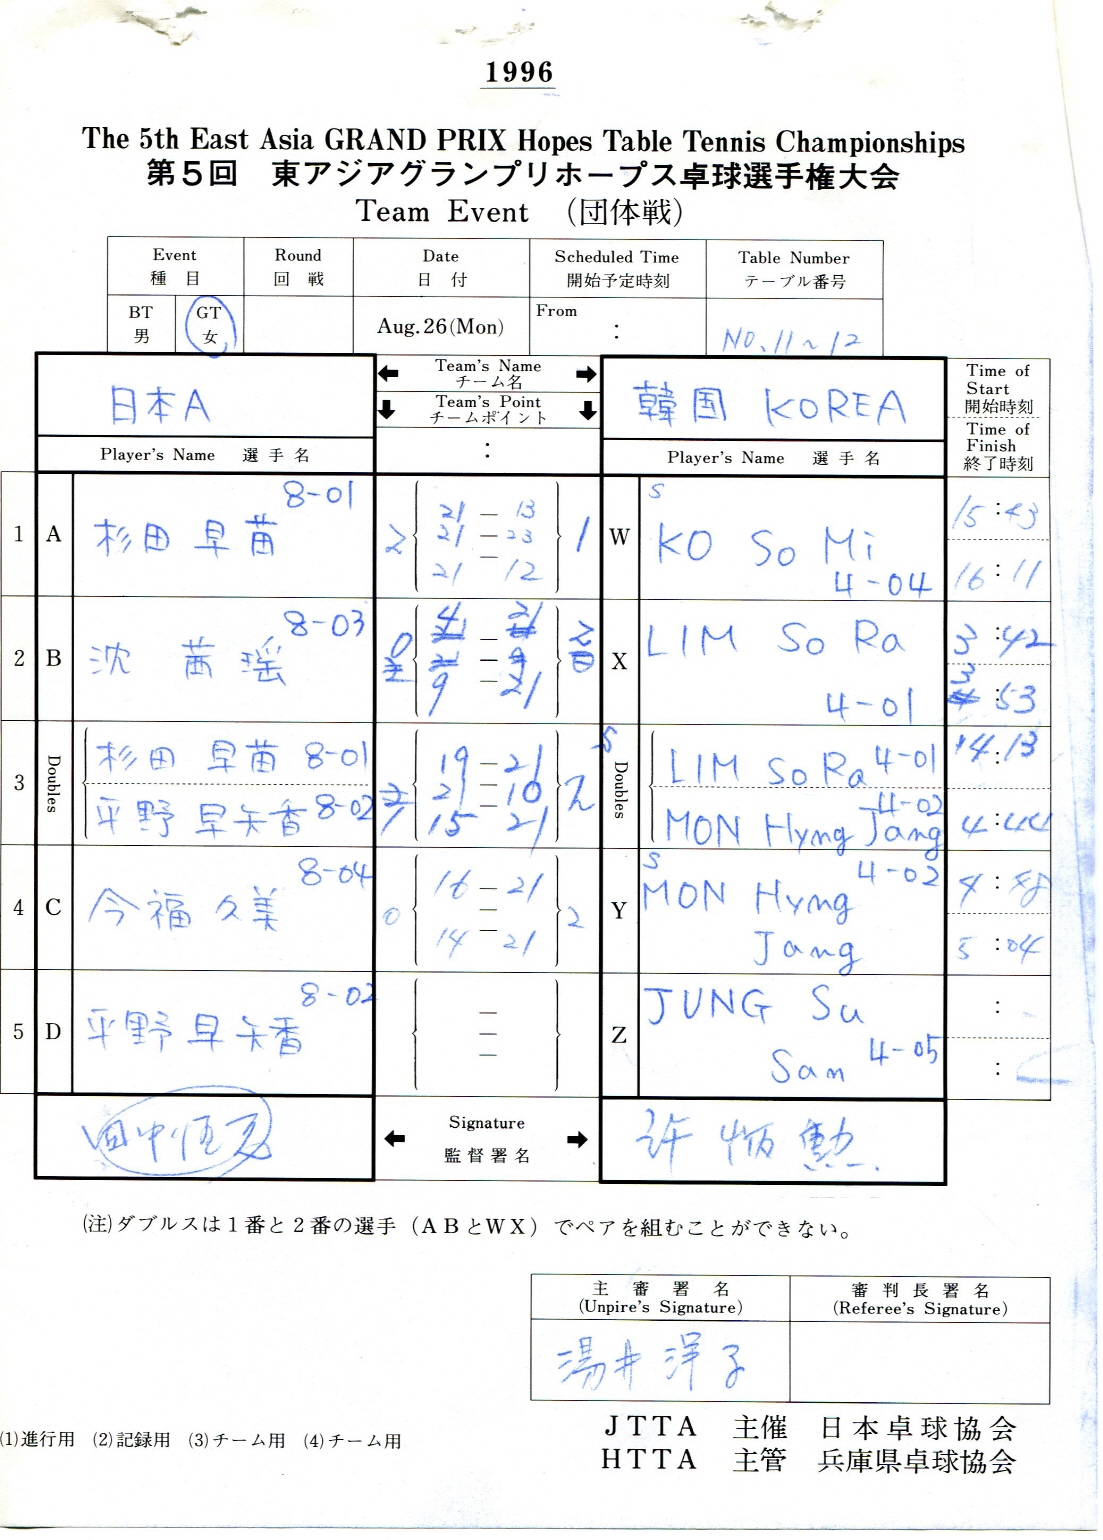 1996
The 5th East Asia GRAND PRIX Hopes Table Tennis Championships
第5回 東アジアグランプリホープス卓球選手権大会
Team Event (団体戦)
Event Round Date Scheduled Time Table Number
種 目 回 戦 日 付 開始予定時刻 テーブル番号
BT GT Aug.26(Mon) From :
男 女 NO.11~12
日本A ← Team's Name チーム名 → 韓国 KOREA
↓ Team's Point チームポイント ↓
:
Time of Start 開始時刻
Time of Finish 終了時刻
Player's Name 選手名 Player's Name 選手名
1 A 杉田 早苗 8-01 2 1 W S KO So Mi 4-04
21 — 13
21 — 23
21 — 12
15:43
16:11
2 B 沈 茜瑶 8-03 0 2 X LIM So Ra 4-01
4 — 21
—
9 — 21
3:42
3:53
3 Doubles 杉田 早苗 8-01 1 2 S Doubles LIM So Ra 4-01
平野 早矢香 8-02 MON Hyng Jang 4-02
19 — 21
21 — 10
15 — 21
14:13
4:44
4 C 今福 久美 8-04 0 2 Y S MON Hyng Jang 4-02
16 — 21
—
14 — 21
4:48
5:04
5 D 平野 早矢香 8-02 Z JUNG Su San 4-05
—
—
—
:
:
← Signature 監督署名 →
許 炳 勲
(注)ダブルスは1番と2番の選手(ABとWX)でペアを組むことができない。
主審署名 審判長署名
(Unpire's Signature) (Referee's Signature)
湯井 洋子
JTTA 主催 日本卓球協会
(1)進行用 (2)記録用 (3)チーム用 (4)チーム用
HTTA 主管 兵庫県卓球協会